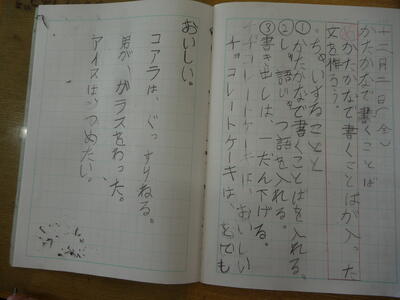 十二月二日(金)
かたかなで書くことば
めかたかなで書くことばが入った
文を作ろう。
ちゅういすること
①かたかなで書くことばを入れる。
②しゅ語じゅつ語を入れる。
③書き出しは、一だん下げる。
チョコレートケーキは、おいしい
チョコレートケーキは、とても
おいしい。
コアラは、ぐっすりねる。
弟が、ガラスをわった。
アイスはつめたい。